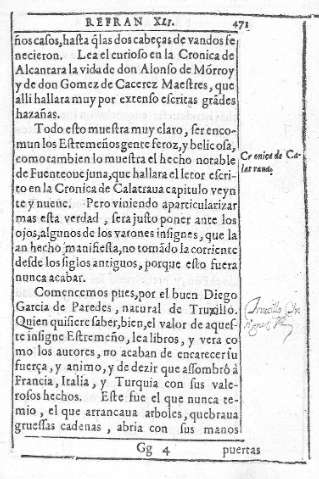 REFRAN XLI. 471
ños casos, hasta q̃ las dos cabeças de vandos fe
necieron. Lea el curioso en la Cronica de
Alcantara la vida de don Alonso de Mõrroy
y de don Gomez de Cacerez Maestres, que
alli hallara muy por extenso escritas grãdes
hazañas.
Todo esto muestra muy claro, ser enco-
mun los Estremeños gente feroz, y belicosa,
como tambien lo muestra el hecho notable
Cronica de Ca-
de Fuenteouejuna, que hallara el letor escri-
latraua.
to en la Cronica de Calatraua capitulo veyn
te y nueue. Pero viniendo a particularizar
mas esta verdad, sera justo poner ante los
ojos, algunos de los varones insignes, que la
an hecho manifiesta, no tomãdo la corriente
desde los siglos antiguos, porque esto fuera
nunca acabar.
Comencemos pues, por el buen Diego
Garcia de Paredes, natural de Truxillo.
Quien quisiere saber, bien, el valor de aques-
te insigne Estremeño, lea libros, y vera co
mo los autores, no acaban de encarecer su
fuerça, y animo, y de dezir que assombrò a
Francia, Italia, y Turquia con sus vale-
rosos hechos. Este fue el que nunca te-
mio, el que arrancaua arboles, quebraua
gruessas cadenas, abria con sus manos
Gg 4 puertas